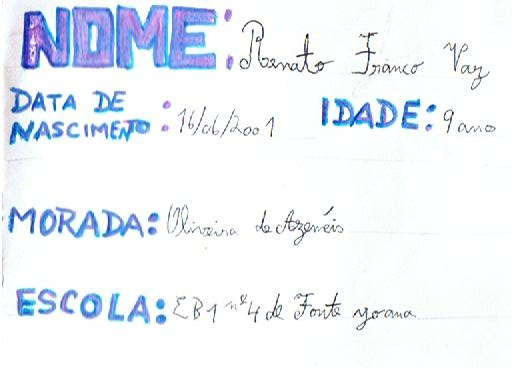 NOME: Renato Franco Vaz
DATA DE
NASCIMENTO: 16/06/2001 IDADE: 9 ano
MORADA: Oliveira de Azeméis
ESCOLA: EB1 nº4 de Fonte Joana